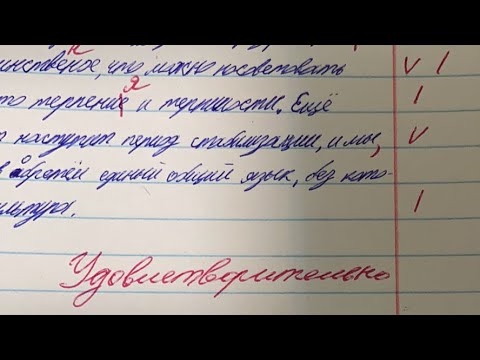 инственое, что можно посоветовать
н
то терпение и терпимости. Ещё
я
наступит период стабилизации, и мы,
обретём единый общий язык, без кото-
льтура.
Удовлетворительно